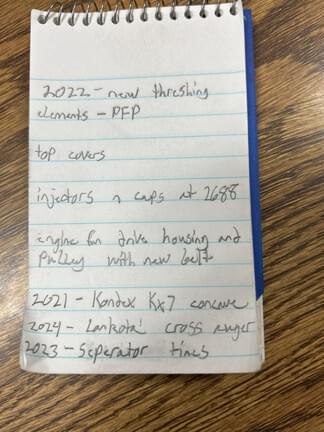 2022 - new threshing
elements - PFP
top covers
injectors n caps at 2688
engine fan drive housing and
pulley with new belt
2021 - Kondex Kx7 concave
2024 - Lankota cross auger
2023 - Seperator tines